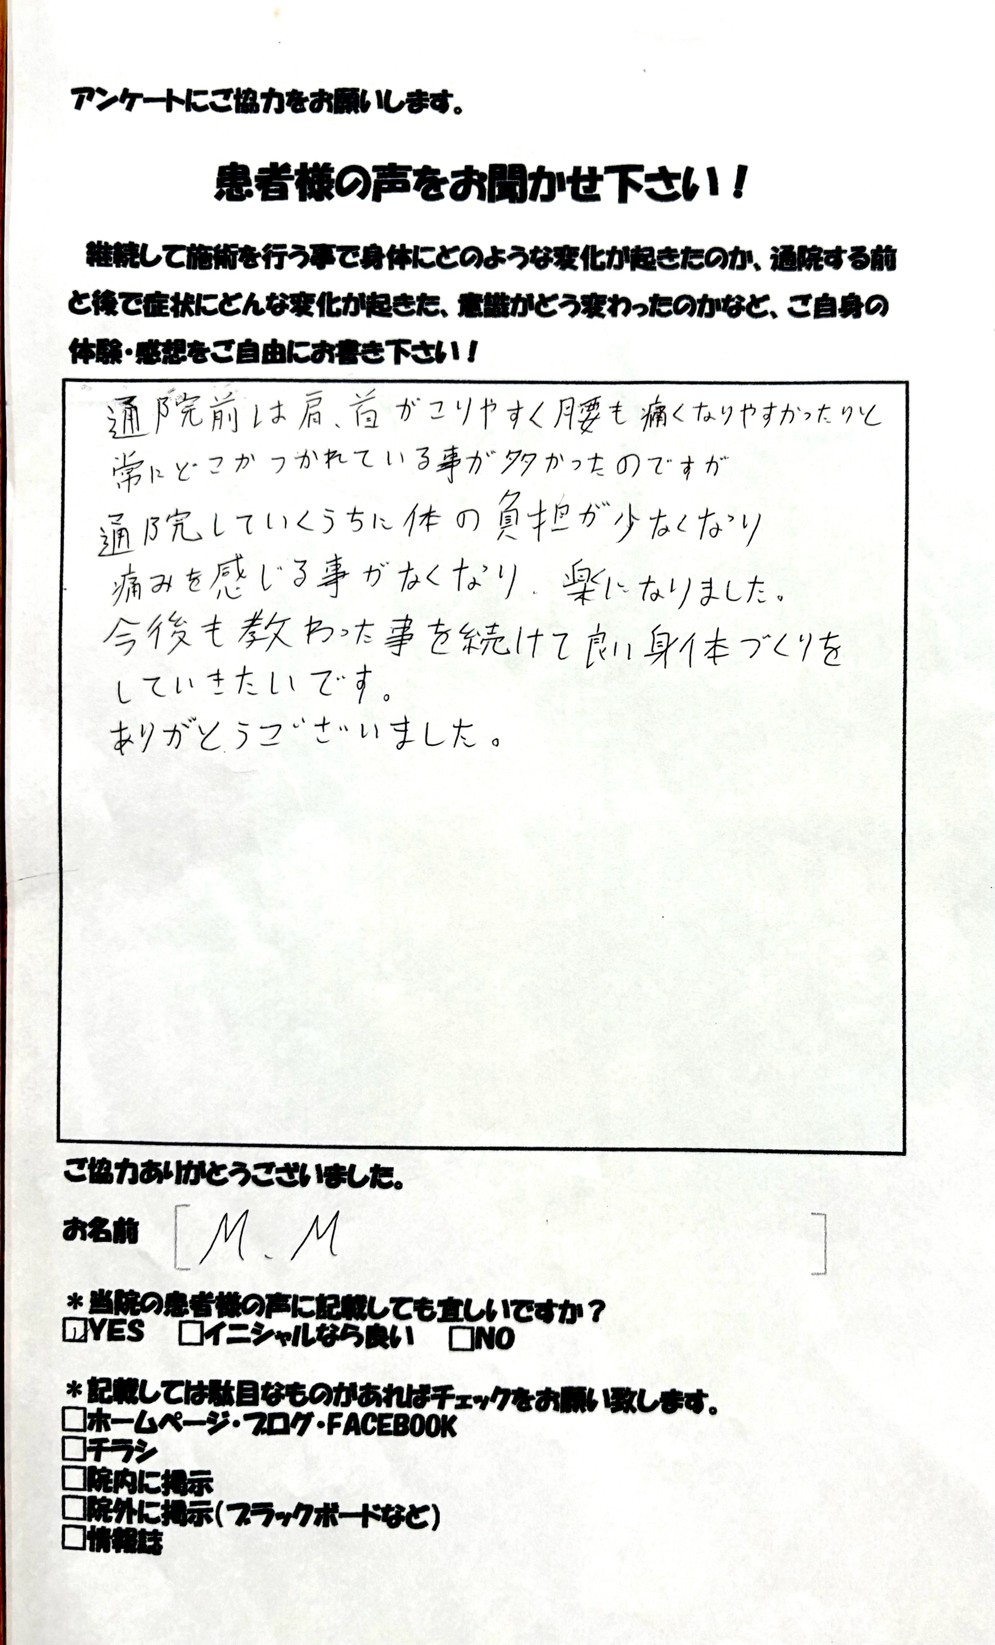 アンケートにご協力をお願いします。
患者様の声をお聞かせ下さい！
継続して施術を行う事で身体にどのような変化が起きたのか、通院する前
と後で症状にどんな変化が起きた、意識がどう変わったのかなど、ご自身の
体験・感想をご自由にお書き下さい！
通院前は肩、首がこりやすく腰も痛くなりやすかったりと
常にどこかつかれている事が多かったのですが
通院していくうちに体の負担が少なくなり
痛みを感じる事がなくなり、楽になりました。
今後も教わった事を続けて良い身体づくりを
していきたいです。
ありがとうございました。
ご協力ありがとうございました。
お名前 [M.M]
＊当院の患者様の声に記載しても宜しいですか？
☑YES □イニシャルなら良い □NO
＊記載しては駄目なものがあればチェックをお願い致します。
□ホームページ・ブログ・FACEBOOK
□チラシ
□院内に掲示
□院外に掲示（ブラックボードなど）
□情報誌